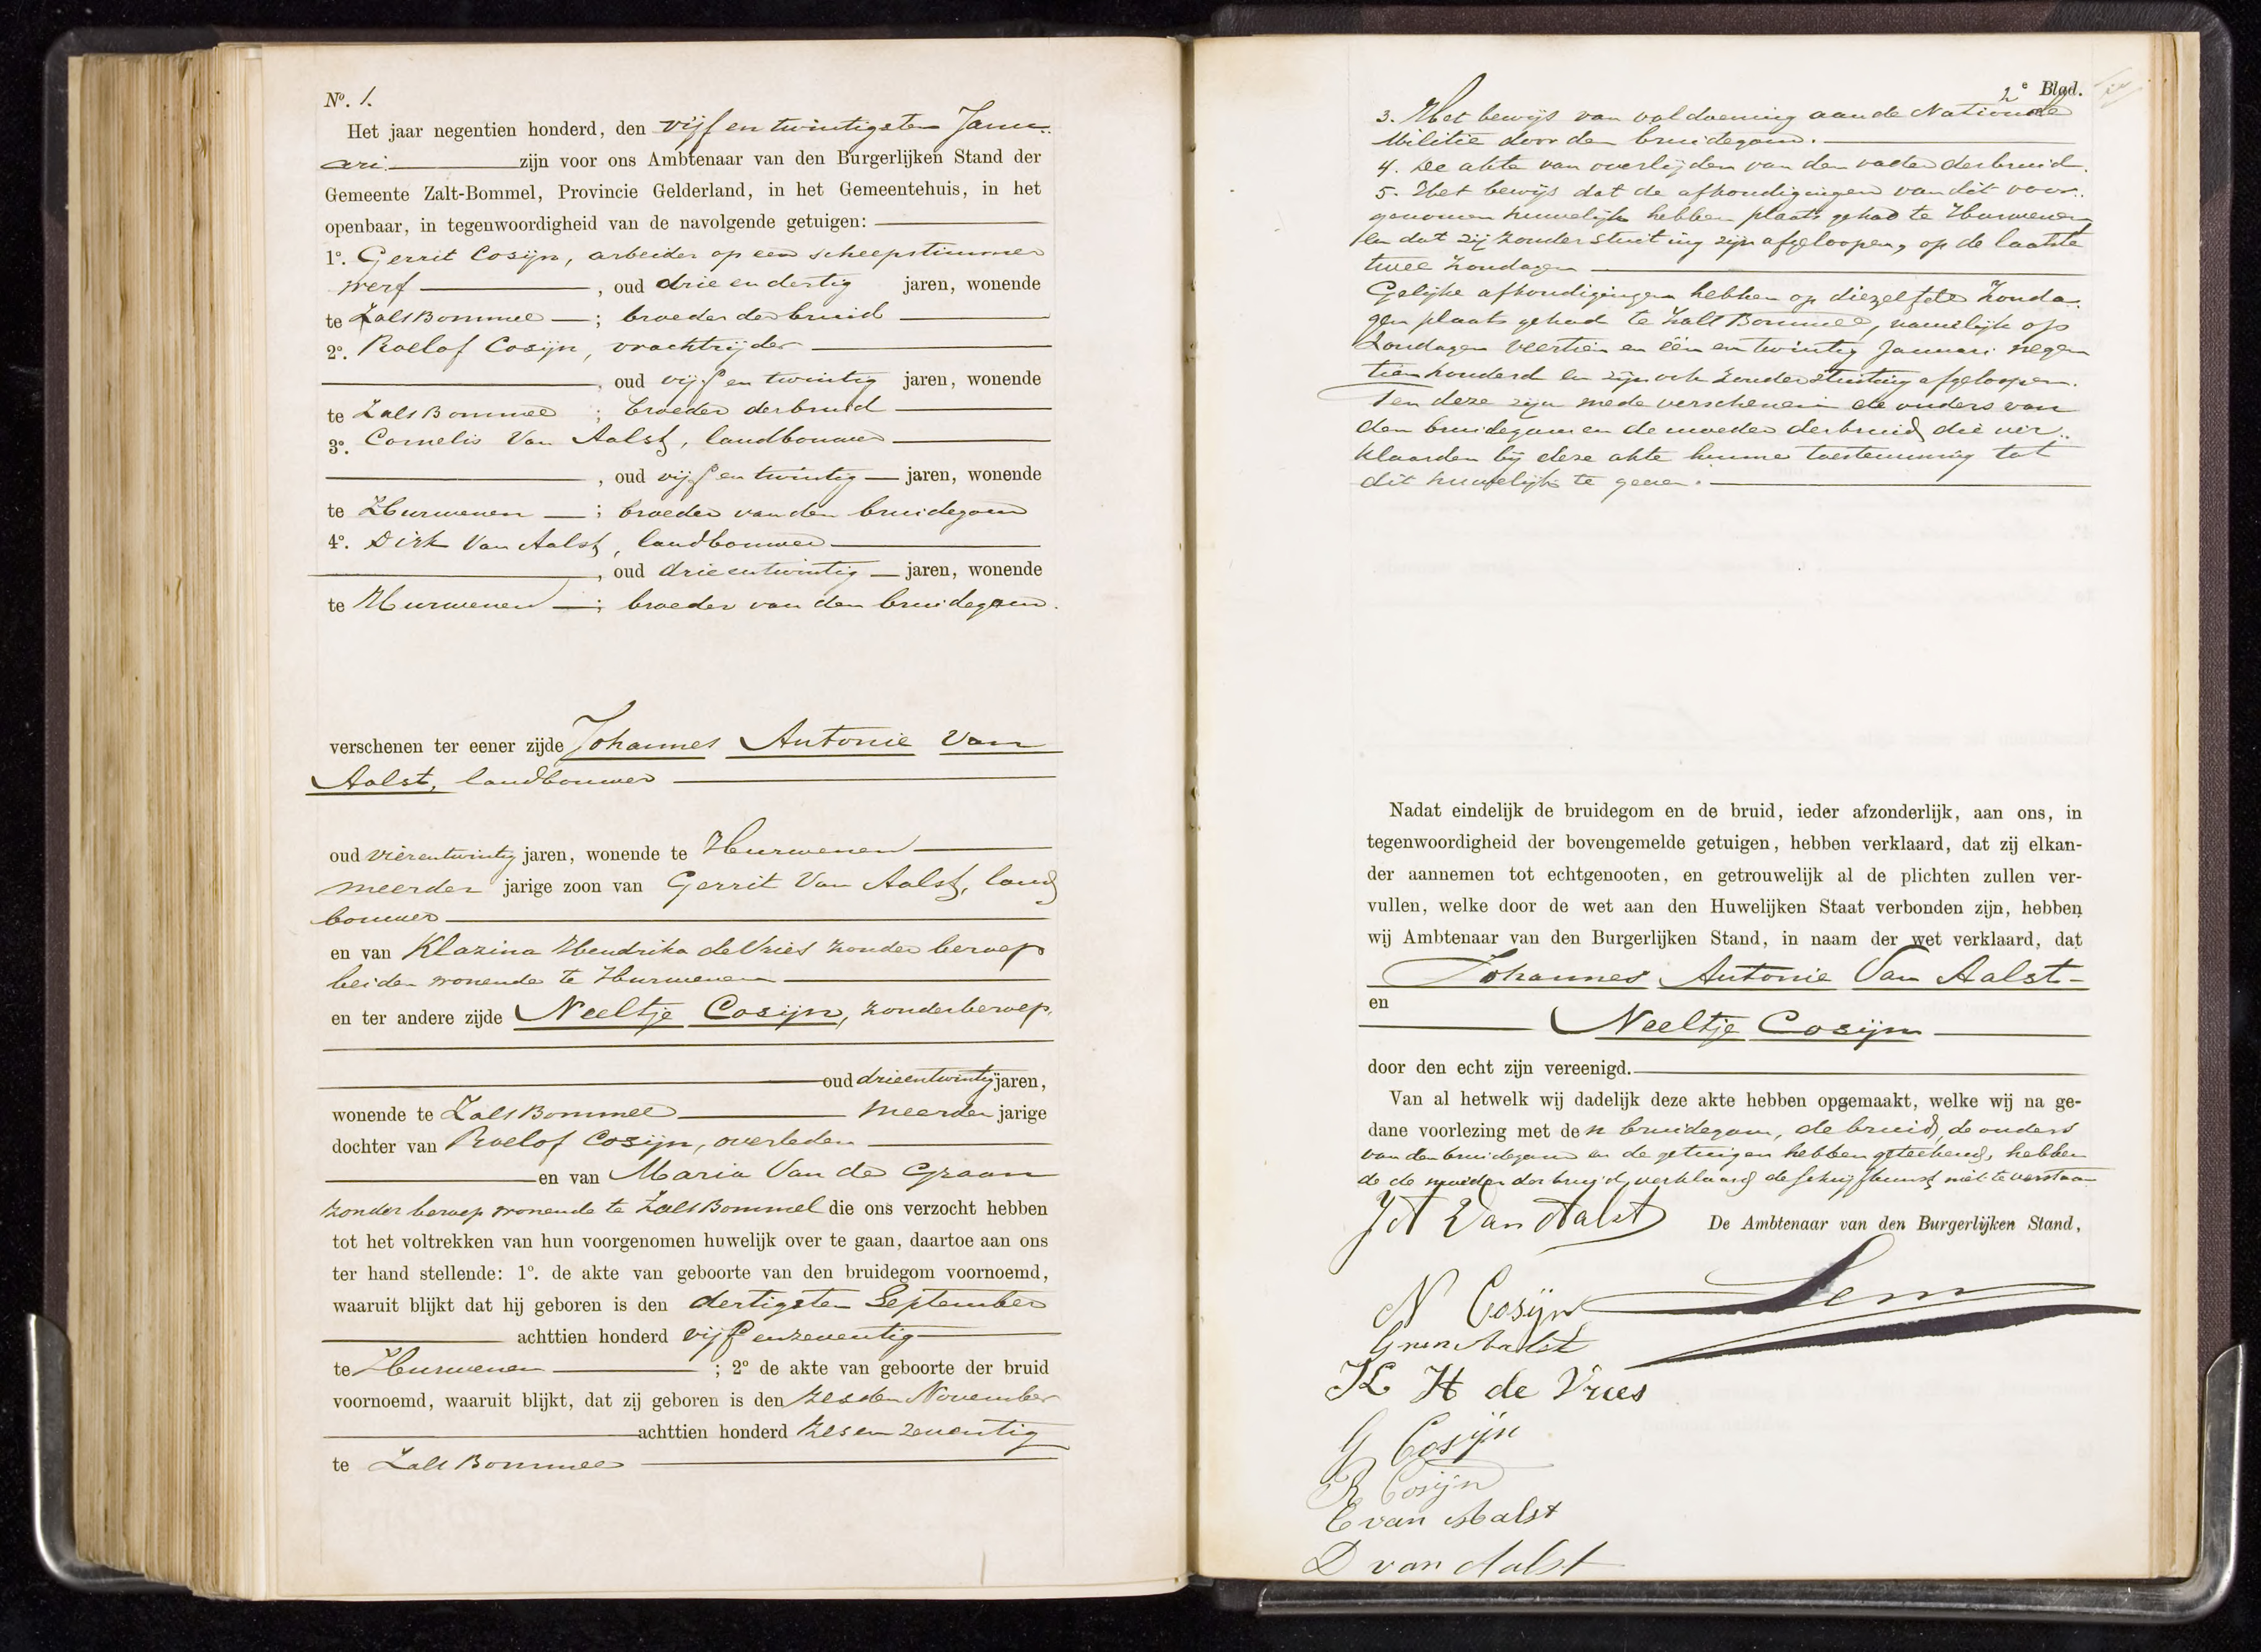 No. 1.
Het jaar negentien honderd, den vijf en twintigsten Janu..
ari zijn voor ons Ambtenaar van den Burgerlijken Stand der
Gemeente Zalt-Bommel, Provincie Gelderland, in het Gemeentehuis, in het
openbaar, in tegenwoordigheid van de navolgende getuigen:
1o. Gerrit Cosijn, arbeider op een scheepstimmer
werf, oud drie en dertig jaren, wonende
te ZaltBommel; broeder der bruid
2o. Roelof Cosijn, vrachtrijder
, oud vijf en twintig jaren, wonende
te ZaltBommel; broeder der bruid
3o. Cornelis Van Aalst, landbouwer
, oud vijf en twintig jaren, wonende
te Hurwenen; broeder van den bruidegom
4o. Dirk Van Aalst, landbouwer
, oud drieentwintig jaren, wonende
te Hurwenen; broeder van den bruidegom.
verschenen ter eener zijde Johannes Antonie Van
Aalst, landbouwer
oud vierentwintig jaren, wonende te Hurwenen
meerder jarige zoon van Gerrit Van Aalst, land
bouwer
en van Klazina Hendrika de Vries zonder beroep
beiden wonende te Hurwenen
en ter andere zijde Neeltje Cosijn, zonder beroep.
oud drieentwintig jaren,
wonende te ZaltBommel meerder jarige
dochter van Roelof Cosijn, overleden
en van Maria Van de Graan
zonder beroep wonende te ZaltBommel die ons verzocht hebben
tot het voltrekken van hun voorgenomen huwelijk over te gaan, daartoe aan ons
ter hand stellende: 1o. de akte van geboorte van den bruidegom voornoemd,
waaruit blijkt dat hij geboren is den dertigsten September
achttien honderd vijf en zeventig
te Hurwenen; 2o de akte van geboorte der bruid
voornoemd, waaruit blijkt, dat zij geboren is den zesden November
achttien honderd zes en zeventig
te ZaltBommel
2e Blad.
3. Het bewijs van voldoening aan de Nationale
Militie door den bruidegom.
4. De akte van overlijden van den vader der bruid.
5. Het bewijs dat de afkondigingen van dit voor..
genomen huwelijk hebben plaats gehad te Hurwenen
en dat zij zonder stuiting zijn afgeloopen, op de laatste
twee Zondagen
Gelijke afkondigingen hebben op diezelfde Zonda.
gen plaats gehad te ZaltBommel, namelijk op
Zondagen veertien en één en twintig Januari negen
tien honderd en zijn ook zonder stuiting afgeloopen.
Ten deze zijn mede verschenen de ouders van
den bruidegom en de moeder der bruid, die ver..
klaarden bij deze akte hunne toestemming tot
dit huwelijk te geven.
Nadat eindelijk de bruidegom en de bruid, ieder afzonderlijk, aan ons, in
tegenwoordigheid der bovengemelde getuigen, hebben verklaard, dat zij elkan-
der aannemen tot echtgenooten, en getrouwelijk al de plichten zullen ver-
vullen, welke door de wet aan den Huwelijken Staat verbonden zijn, hebben
wij Ambtenaar van den Burgerlijken Stand, in naam der wet verklaard, dat
Johannes Antonie Van Aalst
en
Neeltje Cosijn
door den echt zijn vereenigd.
Van al hetwelk wij dadelijk deze akte hebben opgemaakt, welke wij na ge-
dane voorlezing met den bruidegom, de bruid, de ouders
van den bruidegom en de getuigen hebben geteekend, hebben
de de moeder der bruid, verklaard de schrijfkunst niet te verstaan
J A Van Aalst De Ambtenaar van den Burgerlijken Stand,
N Cosijn
G van Aalst
K H de Vries
G Cosijn
R Cosijn
C van Aalst
D van Aalst